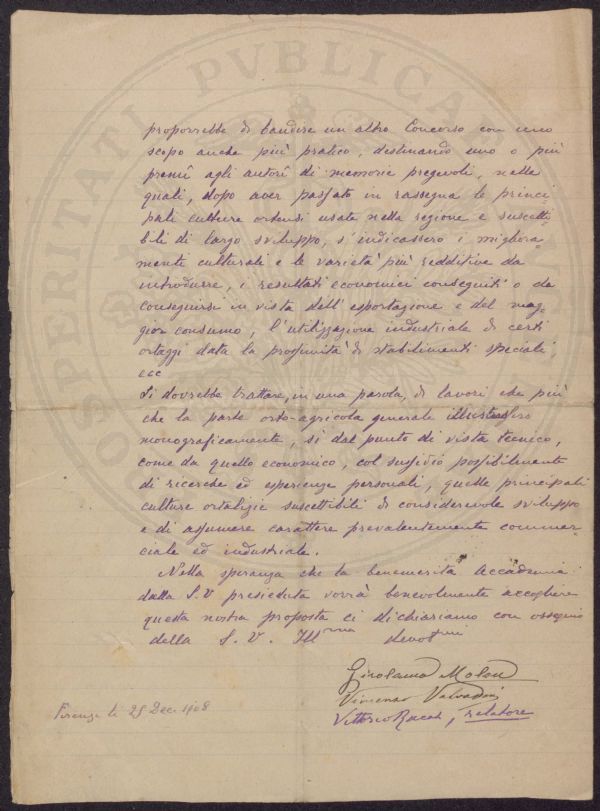 proporrebbe di bandire un altro Concorso con uno
scopo anche più pratico, destinando uno o più
premi agli autori di memorie pregevoli, nelle
quali, dopo aver passato in rassegna le princi-
pali culture ortensi usate nella regione e suscetti-
bili di largo sviluppo, s'indicassero i migliora-
menti culturali e le varietà più redditive da
introdurre, i resultati economici conseguiti o da
conseguirsi in vista dell'esportazione e del mag-
gior consumo, l'utilizzazione industriale di certi
ortaggi data la prossimità di stabilimenti speciali,
ecc
Si dovrebbe trattare, in una parola, di lavori che più
che la parte orto-agricola generale illustrassero
monograficamente, sì dal punto di vista tecnico,
come da quello economico, col sussidio possibilmente
di ricerche ed esperienze personali, quelle principali
culture ortalizie suscettibili di considerevole sviluppo
e di assumere carattere prevalentemente commer-
ciale ed industriale.
Nella speranza che la benemerita Accademia
dalla S.V presieduta vorrà benevolmente accogliere
questa nostra proposta ci dichiariamo con ossequio
della S. V. Illma devotmi
Girolamo Molon
Vincenzo Valvassori
Vittorio Racah, relatore
Firenze li 28 Dec. 1908
PROSPERITATI PVBLICAE